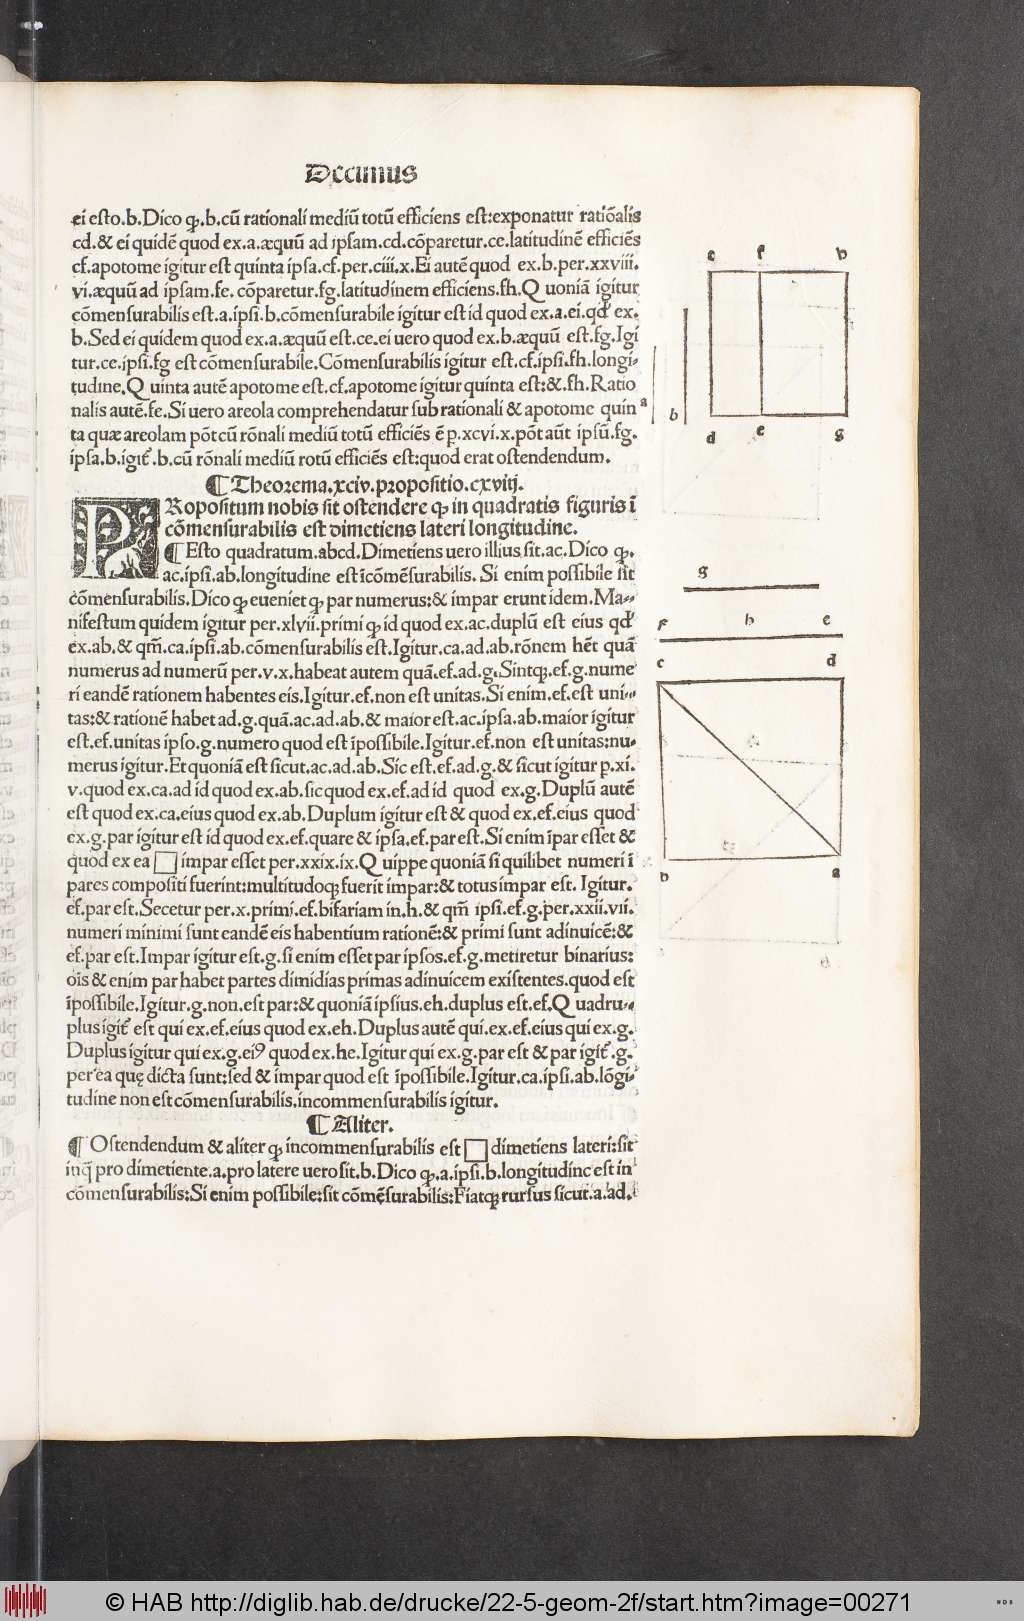 Decimus
ei esto.b.Dico ꝙ.b.cū rationali mediū totū efficiens est:exponatur ratiōalis
cd.& ei quidē quod ex.a.æquū ad ipsam.cd.cōparetur.ce.latitudinē efficiēs
cf.apotome igitur est quinta ipsa.cf.per.ciii.x.Ei autē quod ex.b.per.xxviii.
vi.æquū ad ipsam.fe.cōparetur.fg.latitudinem efficiens.fh.Quoniā igitur
cōmensurabilis est.a.ipsi.b.cōmensurabile igitur est id quod ex.a.ei.qd' ex.
b.Sed ei quidem quod ex.a.æquū est.ce.ei uero quod ex.b.æquū est.fg.Igi
tur.ce.ipsi.fg est cōmensurabile.Cōmensurabilis igitur est.cf.ipsi.fh.longi-
tudine.Quinta autē apotome est.cf.apotome igitur quinta est:&.fh.Ratio
nalis autē.fe.Si uero areola comprehendatur sub rationali & apotome quin
ta quæ areolam pōt cū rōnali mediū totū efficiēs ē p.xcvi.x.pōt aūt ipsū.fg.
ipsa.b.igit̃.b.cū rōnali mediū rotū efficiēs est:quod erat ostendendum.
¶Theorema.xciv.propositio.cxviij.
PRopositum nobis sit ostendere ꝙ in quadratis figuris ī
cōmensurabilis est dimetiens lateri longitudine.
¶Esto quadratum.abcd.Dimetiens uero illius sit.ac.Dico ꝙ.
ac.ipsi.ab.longitudine est īcōmēsurabilis. Si enim possibile sit
cōmensurabilis.Dico ꝙ eueniet ꝙ par numerus:& impar erunt idem.Ma-
nifestum quidem igitur per.xlvii.primi ꝙ id quod ex.ac.duplū est eius qd'
ex.ab.& qm̄.ca.ipsi.ab.cōmensurabilis est.Igitur.ca.ad.ab.rōnem hēt quā
numerus ad numerū per.v.x.habeat autem quā.ef.ad.g.Sintqꝫ.ef.g.nume
ri eandē rationem habentes eis.Igitur.ef.non est unitas.Si enim.ef.est uni-
tas:& rationē habet ad.g.quā.ac.ad.ab.& maior est.ac.ipsa.ab.maior igitur
est.ef.unitas ipso.g.numero quod est īpossibile.Igitur.ef.non est unitas:nu-
merus igitur.Et quoniā est sicut.ac.ad.ab.Sic est.ef.ad.g.& sicut igitur p.xi.
v.quod ex.ca.ad id quod ex.ab.sic quod ex.ef.ad id quod ex.g.Duplū autē
est quod ex.ca.eius quod ex.ab.Duplum igitur est & quod ex.ef.eius quod
ex.g.par igitur est id quod ex.ef.quare & ipsa.ef.par est.Si enim īpar esset &
quod ex ea □ impar esset per.xxix.ix.Quippe quoniā si quilibet numeri ī
pares compositi fuerint:multitudoqꝫ fuerit impar:& totus impar est. Igitur.
ef.par est.Secetur per.x.primi.ef.bifariam in.h.& qm̄ ipsi.ef.g.per.xxii.vii.
numeri minimi sunt eandē eis habentium rationē:& primi sunt adinuicē:&
ef.par est.Impar igitur est.g.si enim esset par ipsos.ef.g.metiretur binarius:
oīs & enim par habet partes dimidias primas adinuicem existentes.quod est
īpossibile.Igitur.g.non.est par:& quoniā ipsius.eh.duplus est.ef.Quadru-
plus igit̃ est qui ex.ef.eius quod ex.eh.Duplus autē qui.ex.ef.eius qui ex.g.
Duplus igitur qui ex.g.eiꝰ quod ex.he.Igitur qui ex.g.par est & par igit̃.g.
per ea quę dicta sunt:sed & impar quod est īpossibile.Igitur.ca.ipsi.ab.lōgi-
tudine non est cōmensurabilis.incommensurabilis igitur.
¶Aliter.
¶Ostendendum & aliter ꝙ incommensurabilis est □ dimetiens lateri:sit
inq̄ pro dimetiente.a.pro latere uero sit.b.Dico ꝙ.a.ipsi.b.longitudine est in
cōmensurabilis:Si enim possibile:sit cōmēsurabilis:Fiatqꝫ rursus sicut.a.ad.
c f h
a b
d e g
g
f h e
c d
b a
© HAB http://diglib.hab.de/drucke/22-5-geom-2f/start.htm?image=00271